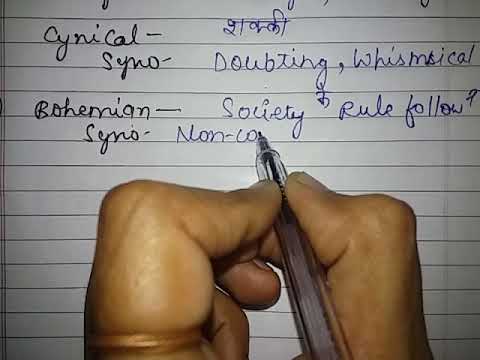 Cynical - शक्की
Syno- Doubting, Whismsical
Bohemian — Society के Rule follow ?
Syno- Non-co